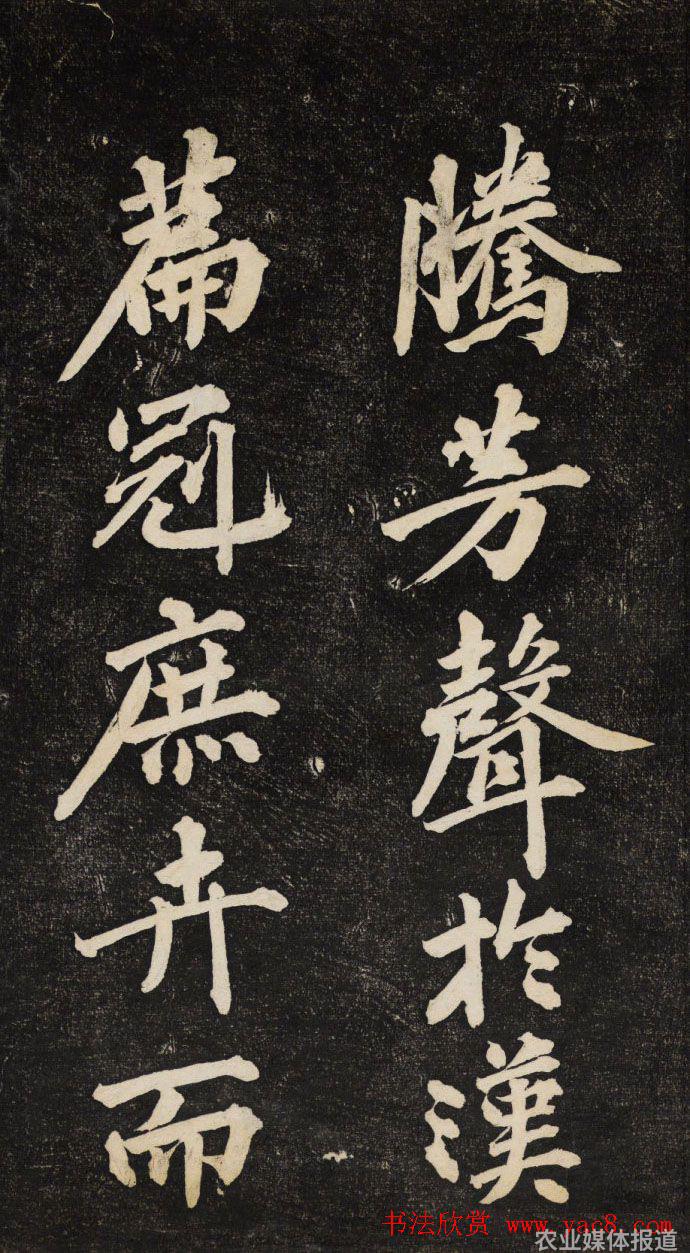 騰芳聲於漢
篇冠庶卉而
书法欣赏 www.yac8.com
农业媒体报道